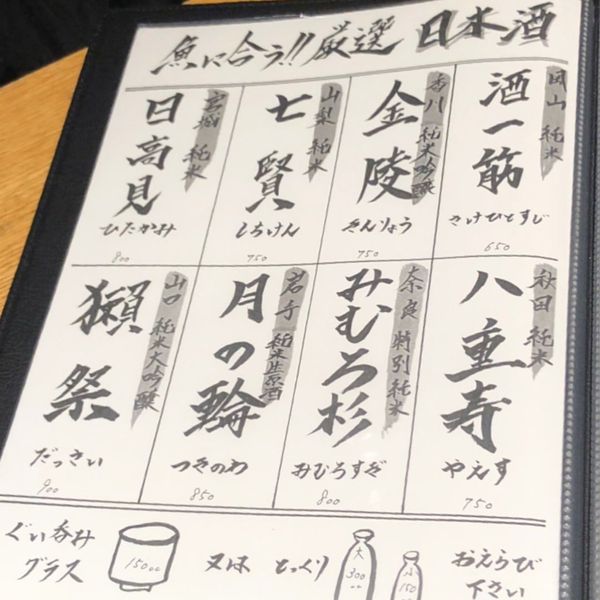 魚に合う!!厳選 日本酒
岡山 純米
酒一筋
さけひとすじ
650
香川 純米吟醸
金陵
きんりょう
750
山梨 純米
七賢
しちけん
750
宮城 純米
日高見
ひたかみ
800
秋田 純米
八重寿
やえす
750
奈良 特別純米
みむろ杉
みむろすぎ
800
岩手 純米生原酒
月の輪
つきのわ
850
山口 純米大吟醸
獺祭
だっさい
900
ぐい呑み
グラス
150cc
又は とっくり
大
300
cc
小
150
おえらび
下さい